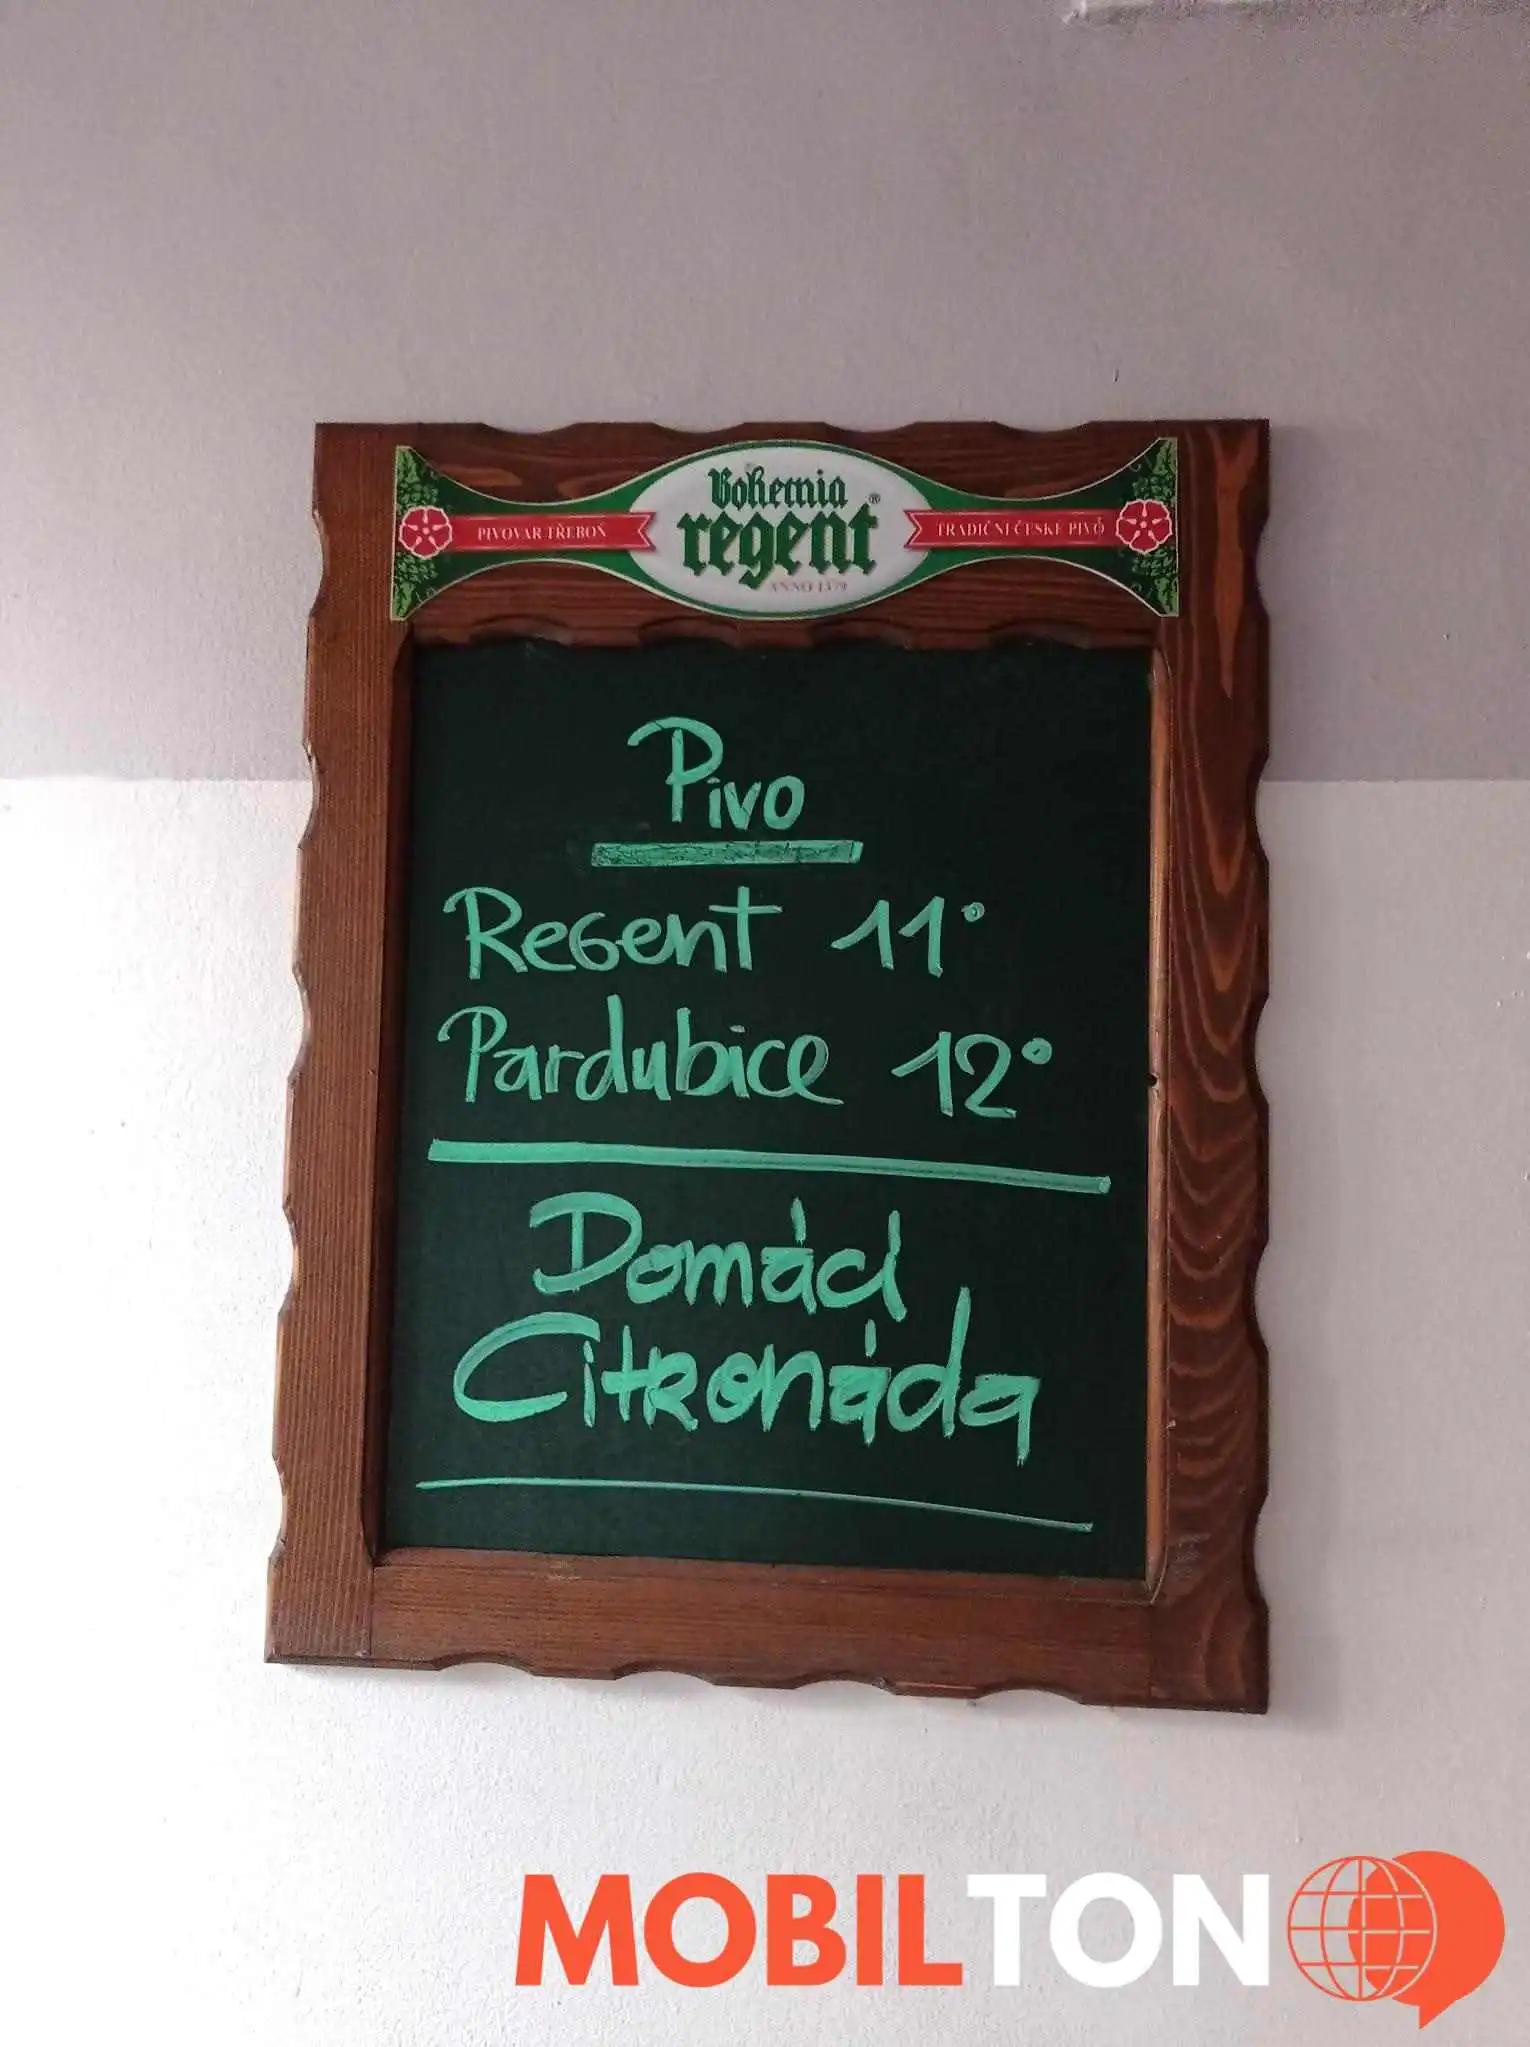 Bohemia
regent ®
ANNO 1379
PIVOVAR TŘEBOŇ
TRADIČNÍ ČESKÉ PIVO
Pivo
Regent 11°
Pardubice 12°
Domácí
Citronáda
MOBILTON